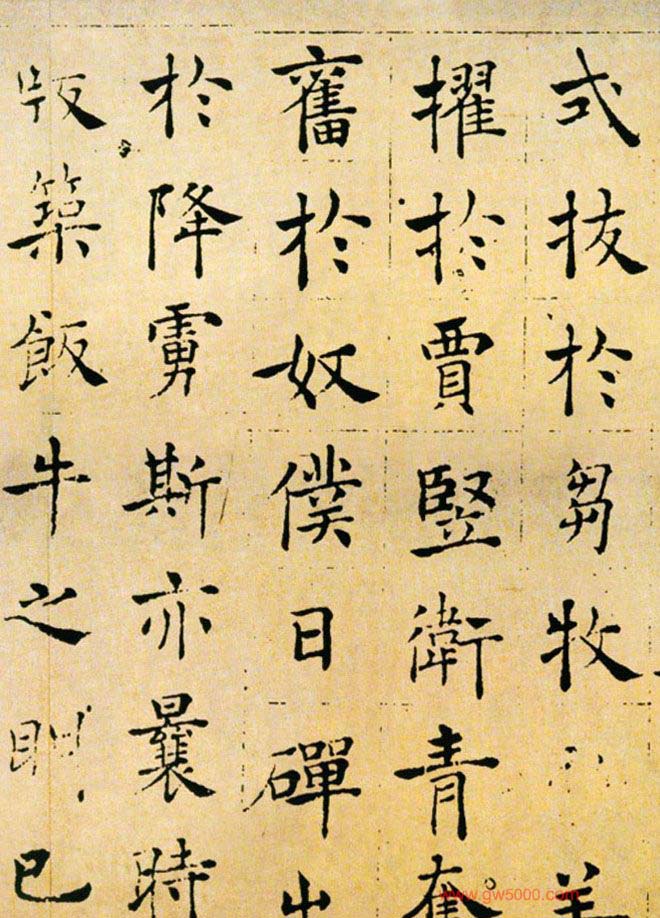 式拔於芻牧羊
擢於賈豎衛青奮
奮於奴僕日磾出
於降虜斯亦曩時
版築飯牛之已
www.gw5000.com